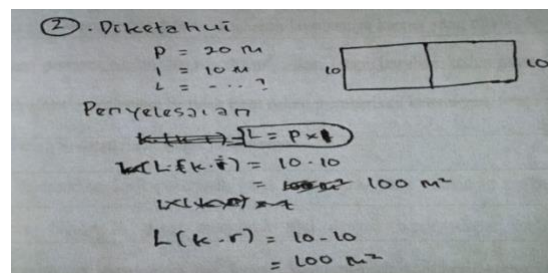 2. Diketahui
P = 20 m
l = 10 m
L = - - - ?
10
10
Penyelesaian
L = P x l
L (k.i) = 10.10
= 100 m²
L (k.r) = 10-10
= 100 m²